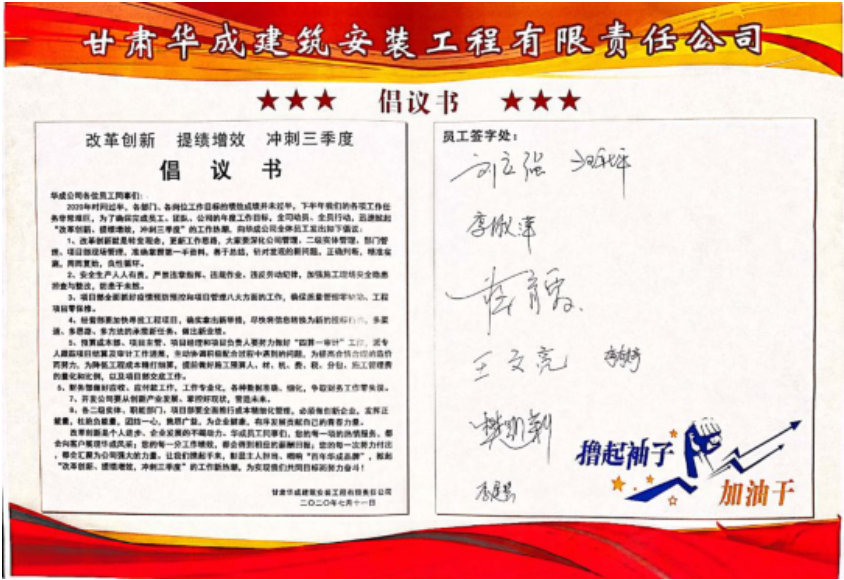 甘肃华成建筑安装工程有限责任公司
★★★ 倡议书 ★★★
改革创新 提绩增效 冲刺三季度
倡 议 书
华成公司各位员工同事们：
2020年时间过半，各部门、各岗位工作目标的绩效成绩并未过半，下半年我们的各项工作任
务非常艰巨，为了确保完成员工、团队、公司的年度工作目标，全司动员、全员行动，迅速掀起
“改革创新、提绩增效，冲刺三季度”的工作热潮，向华成公司全体员工发出如下倡议：
1、改革创新就是转变观念，更新工作思路，大家要深化公司管理、二级实体管理，部门管
理、项目部现场管理，准确掌握第一手资料，善于总结，针对发现的新问题，正确判断，精准实
施，周而复始，良性循环。
2、安全生产人人有责，严禁违章指挥、违规作业、违反劳动纪律，加强施工现场安全隐患
排查与整改，防患于未然。
3、项目部全面抓好疫情预防预控和项目管理八大方面的工作，确保质量管控零缺陷、工程
项目零保修。
4、经营部要加快寻找工程项目，确实拿出新举措，尽快将信息转换为新的投标行为，多渠
道、多思路、多方法的承揽新任务、做出新业绩。
5、预算成本部、项目主管、项目经理和项目负责人要努力做好“四算一审计”工作，派专
人跟踪项目结算及审计工作进展，主动协调积极配合过程中遇到的问题，为提高合情合理的造价
而努力，为降低工程成本精打细算，提前做好施工预算人、材、机、费、税、分包、施工管理费
的量化和比例，以及项目部交底工作。
6、财务部做好应收、应付款工作，工作专业化，各种数据准确、细化，争取财务工作零失误。
7、开发公司要从创新产业发展、掌控好现状，营造未来。
8、各二级实体、职能部门，项目部要全面推行成本精细化管理，必须做创新企业，发挥正
能量，杜绝负能量，团结一心，集思广益，为企业健康，有序发展贡献自己的青春力量。
改革创新是个人进步、企业发展的不竭动力。华成员工同事们，您的每一项的热情服务，都
会向客户展现华成风采；您的每一分工作绩效，都会得到相应的薪酬回报；您的每一次努力付出
，都会汇聚为公司强大的力量。让我们携起手来，彰显主人担当，唱响“百年华成品牌”，掀起
“改革创新、提绩增效，冲刺三季度”的工作新热潮，为实现我们共同目标而努力奋斗！
甘肃华成建筑安装工程有限责任公司
二〇二〇年七月十一日
员工签字处：
刘立强
王文亮
撸起袖子
加油干